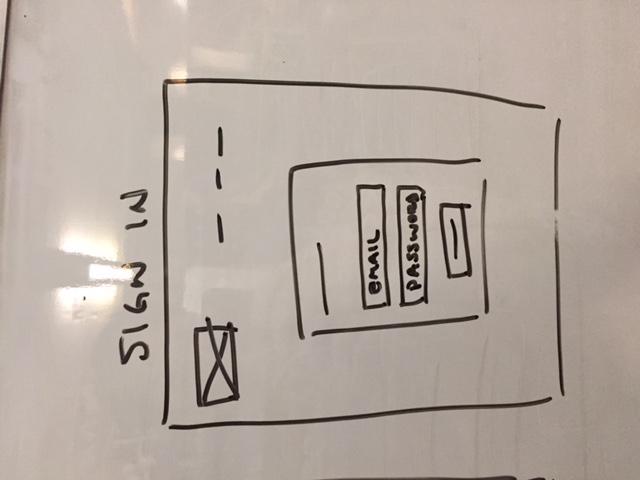 SIGN IN
EMAIL
PASSWORD